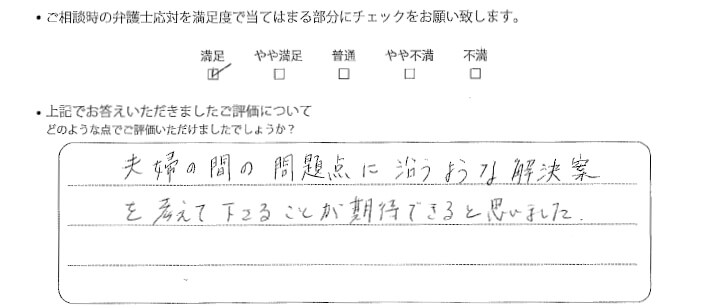 ・ご相談時の弁護士応対を満足度で当てはまる部分にチェックをお願い致します。
満足 やや満足 普通 やや不満 不満
☑ □ □ □ □
・上記でお答えいただきましたご評価について
どのような点でご評価いただけましたでしょうか？
夫婦の間の問題点に沿うような解決案
を考えて下さることが期待できると思いました.